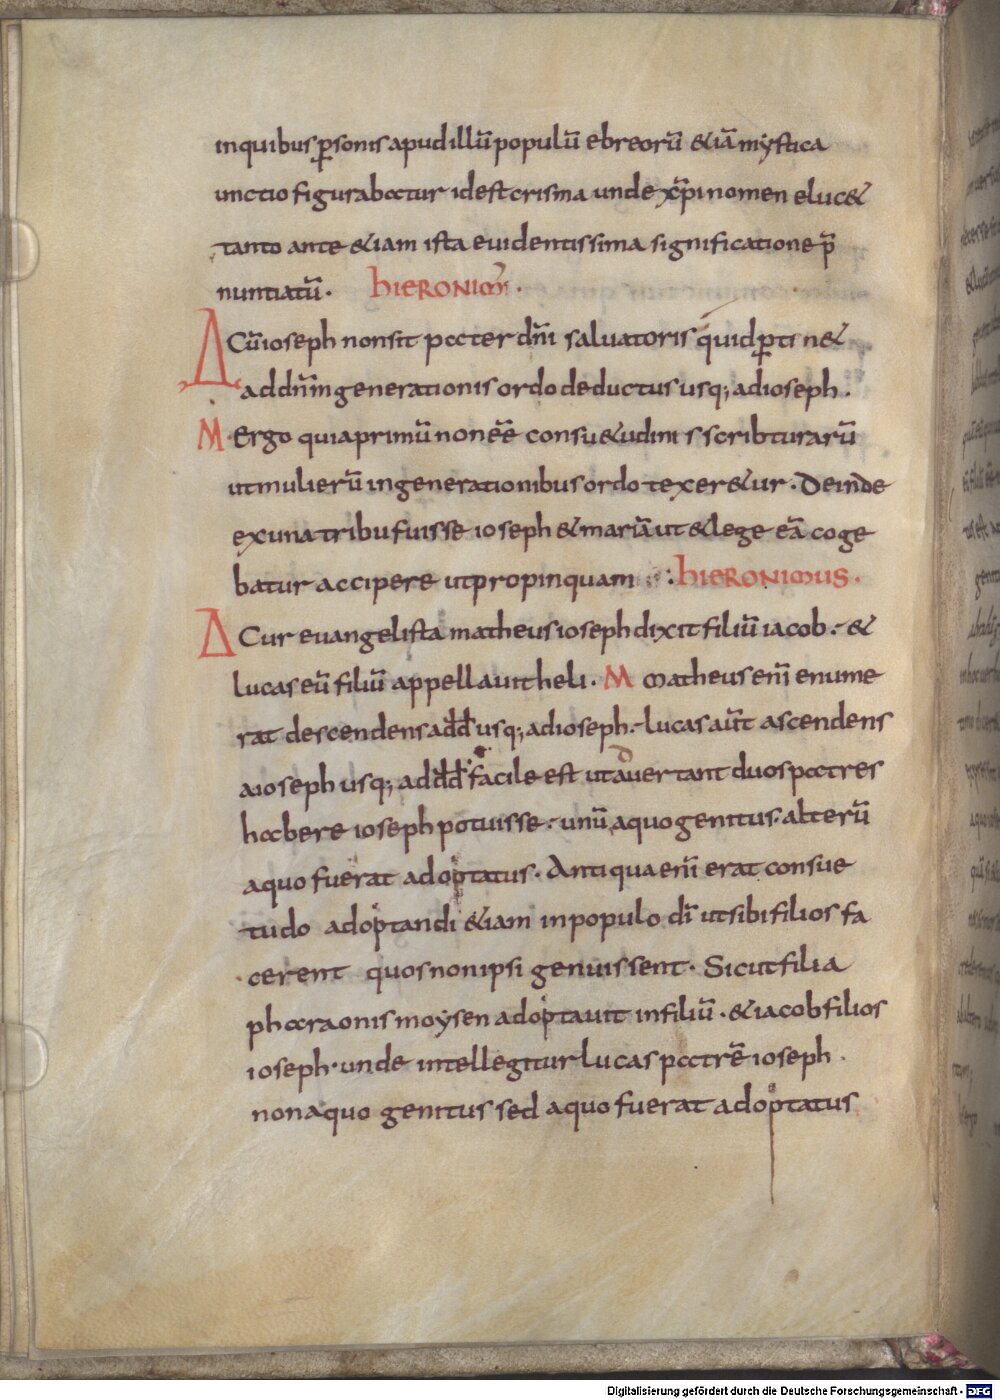 inquibus p̄sonis apud illū populū ebreorū &iā mystica
unctio figurabatur idest crisma unde xp̄i nomen eluc&
tanto ante &iam ista evidentissima significatione p̄
nuntiatū. hIERONIM̄.
Δ Cū ioseph non sit pater dn̄i salvatoris quid p̄tin&
ad dn̄m generationis ordo deductus usq; ad ioseph.
M Ergo quia primū non eē̄ consu&udinis scribturarū
ut mulierū in generationibus ordo texer&ur. Deinde
ex una tribu fuisse ioseph & mariā ut & lege eā coge
batur accipere ut propinquam : hIERONIMUS.
Δ Cur evangelista matheus ioseph dixit filiū iacob. &
lucas eū filiū appellavit heli. M matheus enī enume
rat descendens ad dd̄ usq; ad ioseph. lucas aūt ascendens
a ioseph usq; ad dd̄ facile est ut advertant duos patres
habere ioseph potuisse. unū a quo genitus. alterū
a quo fuerat adoptatus. Antiqua enī erat consue
tudo adoptandi &iam in populo dī ut sibi filios fa
cerent quos non ipsi genuissent. Sicut filia
pharaonis moysen adoptavit in filiū. & iacob filios
ioseph. unde intellegitur lucas patrē ioseph.
non a quo genitus sed a quo fuerat adoptatus
Digitalisierung gefördert durch die Deutsche Forschungsgemeinschaft - DFG